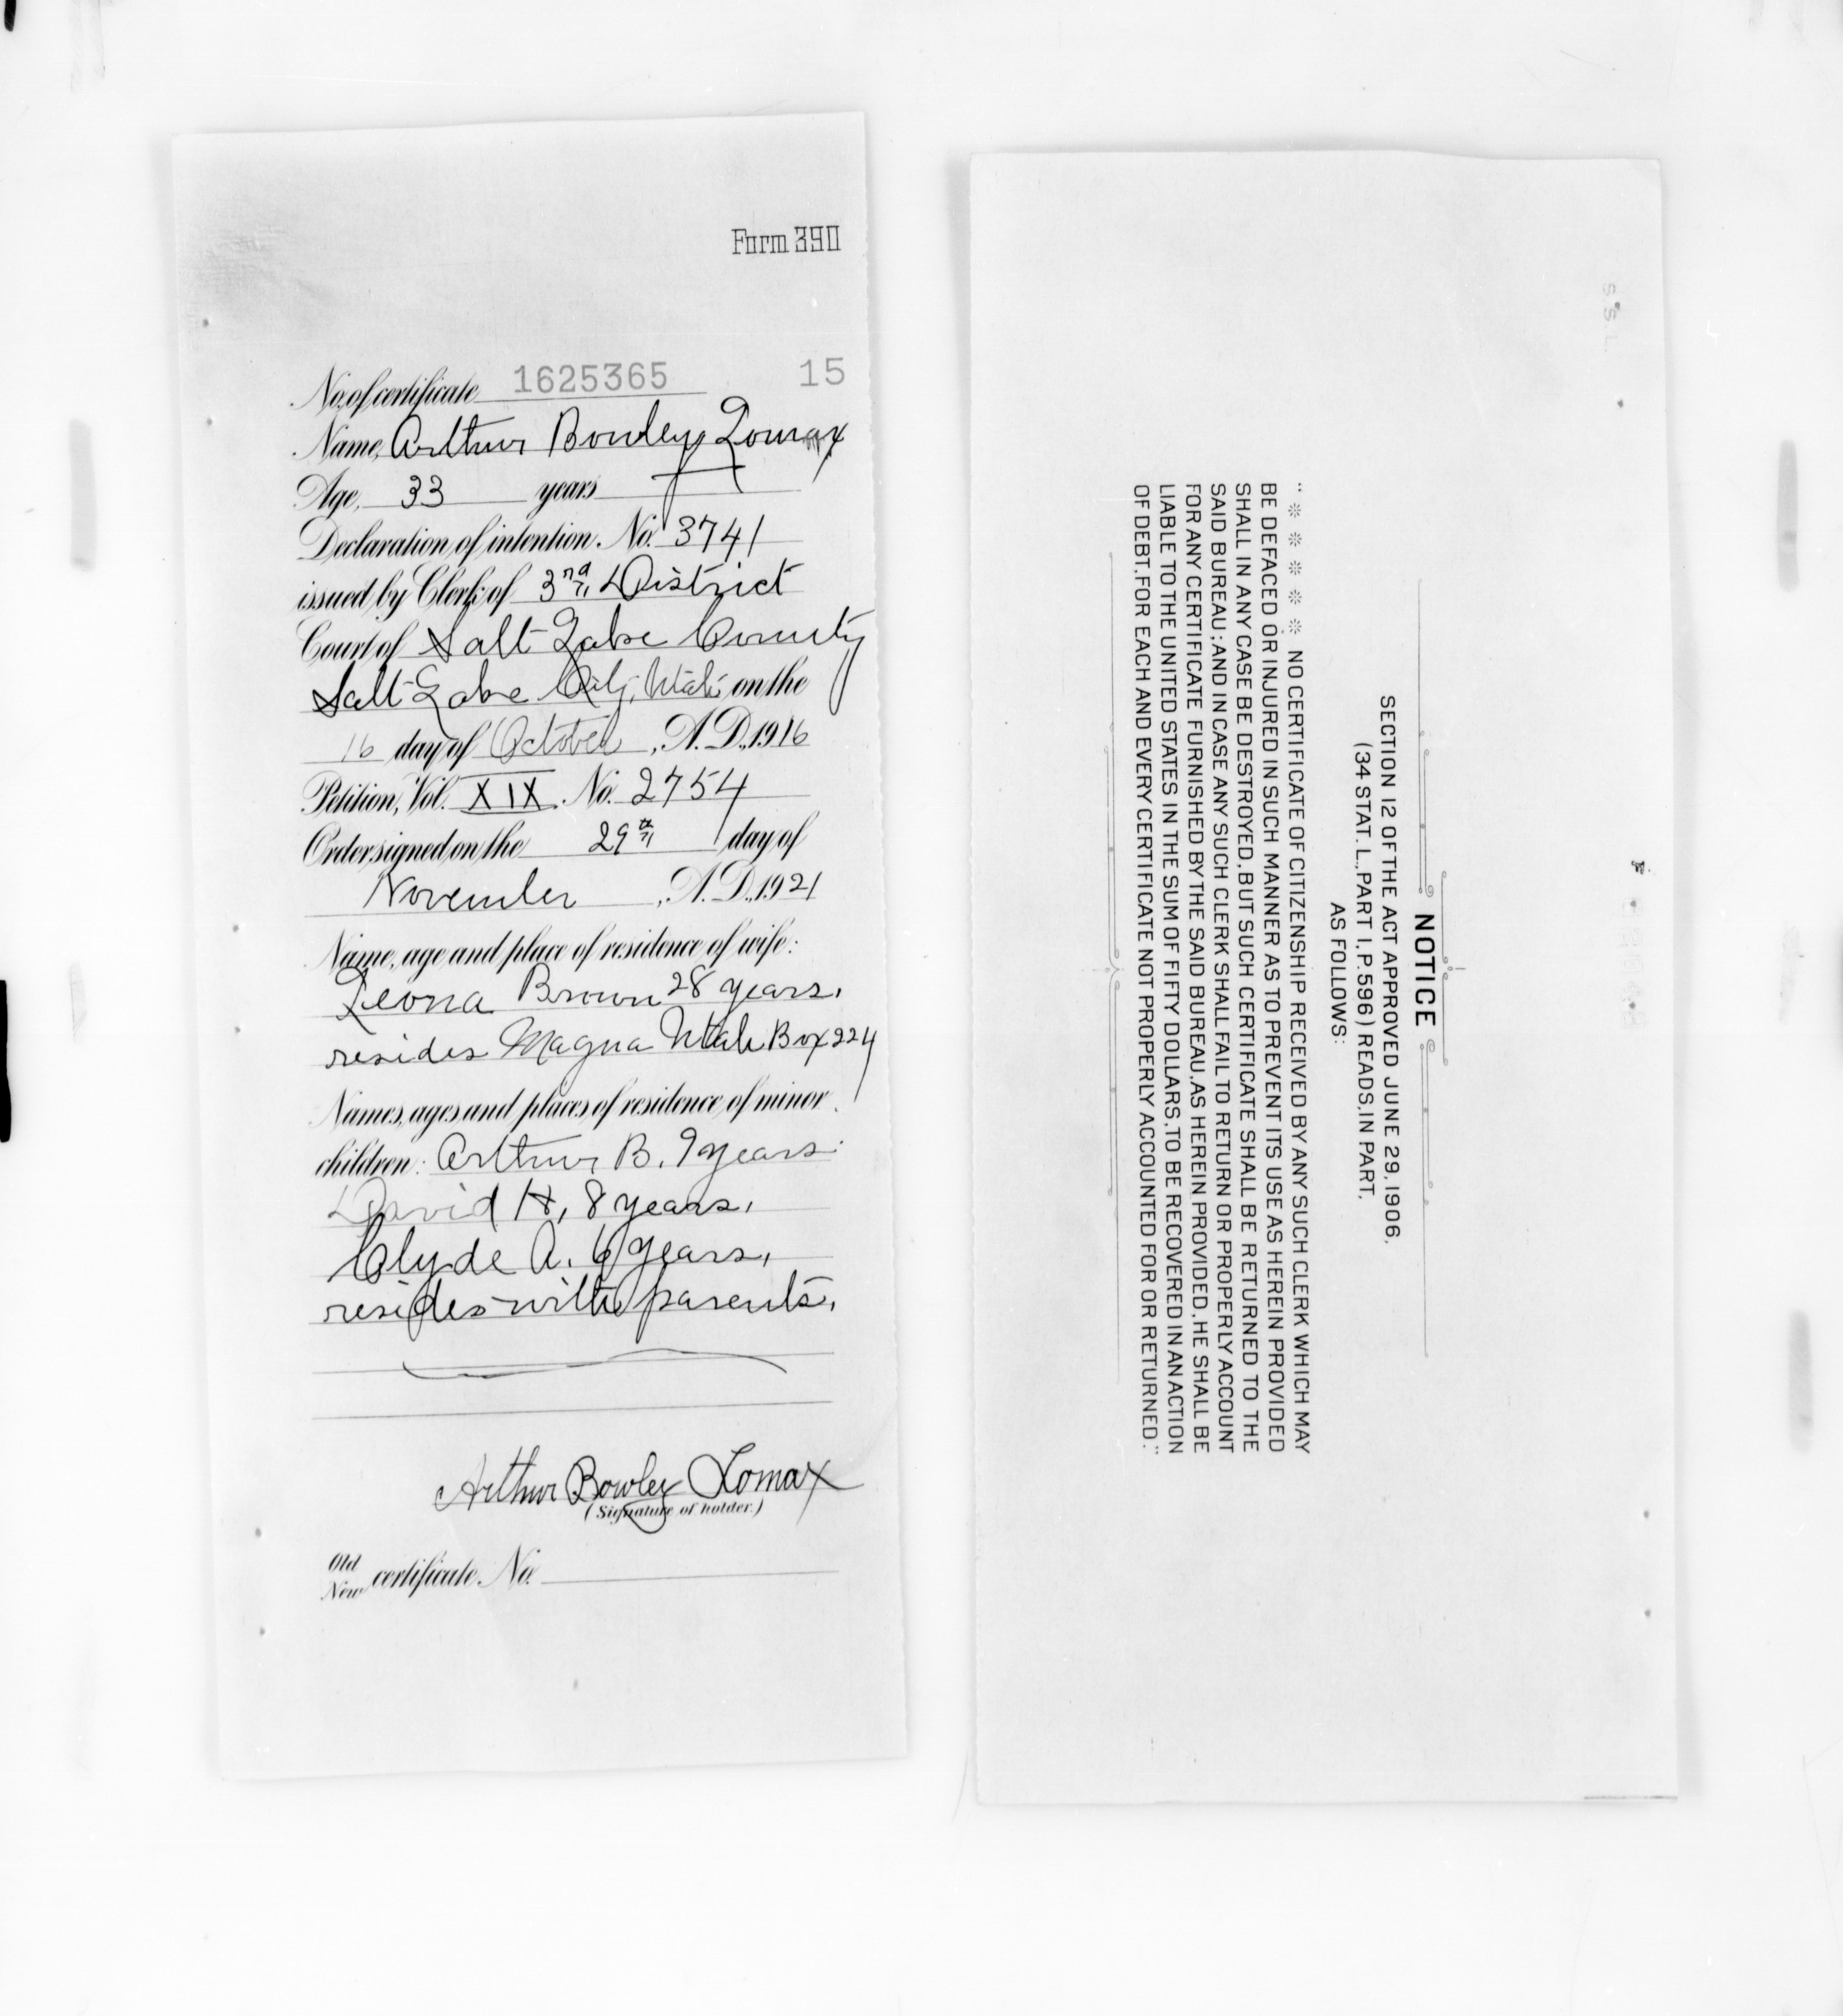 Form 390
No. of certificate 1625365 15
Name, Arthur Bowley Lomax
Age, 33 years
Declaration of intention. No. 3741
issued by Clerk of 3rd District
Court of Salt Lake County
Salt Lake City, Utah on the
16 day of October, A.D., 1916
Petition, Vol. XIX. No. 2754
Order signed on the 29th day of
November, A.D., 1921
Name, age and place of residence of wife:
Leona Brown 28 years,
resides Magna Utah Box 224
Names, ages and places of residence of minor
children: Arthur B. 9 years
David H, 8 years,
Clyde A. 6 years,
resides with parents,
Arthur Bowley Lomax
(Signature of holder.)
Old
New certificate No.
NOTICE
SECTION 12 OF THE ACT APPROVED JUNE 29, 1906,
(34 STAT. L., PART 1, P. 596) READS, IN PART,
AS FOLLOWS:
" * * * * * NO CERTIFICATE OF CITIZENSHIP RECEIVED BY ANY SUCH CLERK WHICH MAY
BE DEFACED OR INJURED IN SUCH MANNER AS TO PREVENT ITS USE AS HEREIN PROVIDED
SHALL IN ANY CASE BE DESTROYED, BUT SUCH CERTIFICATE SHALL BE RETURNED TO THE
SAID BUREAU; AND IN CASE ANY SUCH CLERK SHALL FAIL TO RETURN OR PROPERLY ACCOUNT
FOR ANY CERTIFICATE FURNISHED BY THE SAID BUREAU, AS HEREIN PROVIDED, HE SHALL BE
LIABLE TO THE UNITED STATES IN THE SUM OF FIFTY DOLLARS, TO BE RECOVERED IN AN ACTION
OF DEBT, FOR EACH AND EVERY CERTIFICATE NOT PROPERLY ACCOUNTED FOR OR RETURNED."